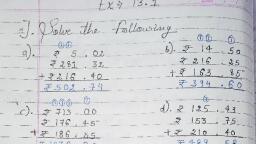 Ex 13.1
Solve the following
a).
₹ 5.02
₹ 281.32
+ ₹ 216.40
₹ 502.74
b).
₹ 14.50
₹ 216.25
+ ₹ 163.85
₹ 394.60
c).
₹ 713.00
₹ 176.45
+ ₹ 186.45
d).
₹ 125.43
₹ 153.75
+ ₹ 210.40